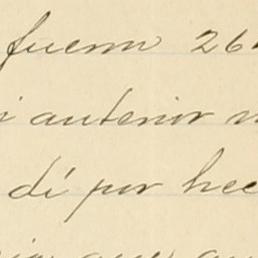 fueron 26
i anterior
di por hec
que